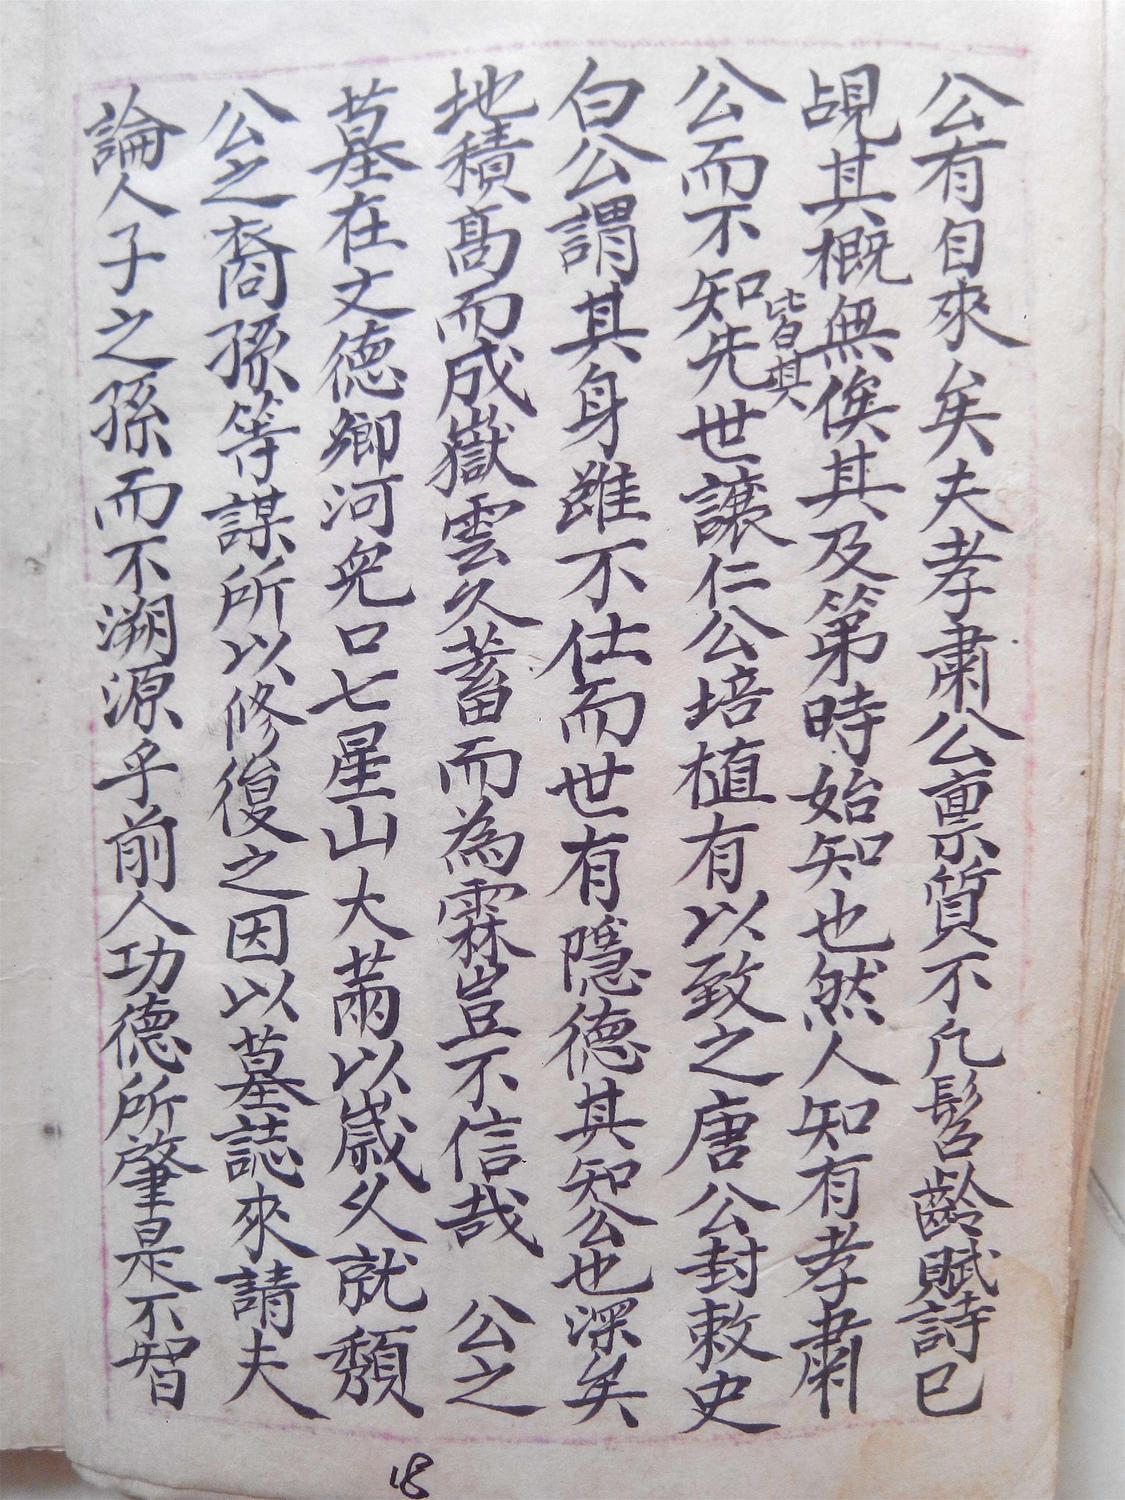 公有自來矣夫孝肅公禀質不凡髫齡賦詩已
覘其概無俟其及第時始知也然人知有孝肅
公而不知先皆其世讓仁公培植有以致之唐公封敕史
白公謂其身雖不仕而世有隱德其知公也深矣
地積高而成嶽雲久蓄而為霖豈不信哉 公之
墓在文德鄉河兜口七星山大萳以歲久就頹
公之裔孫等謀所以修復之因以墓誌來請夫
論人子之孫而不溯源乎前人功德所肇是不智
18